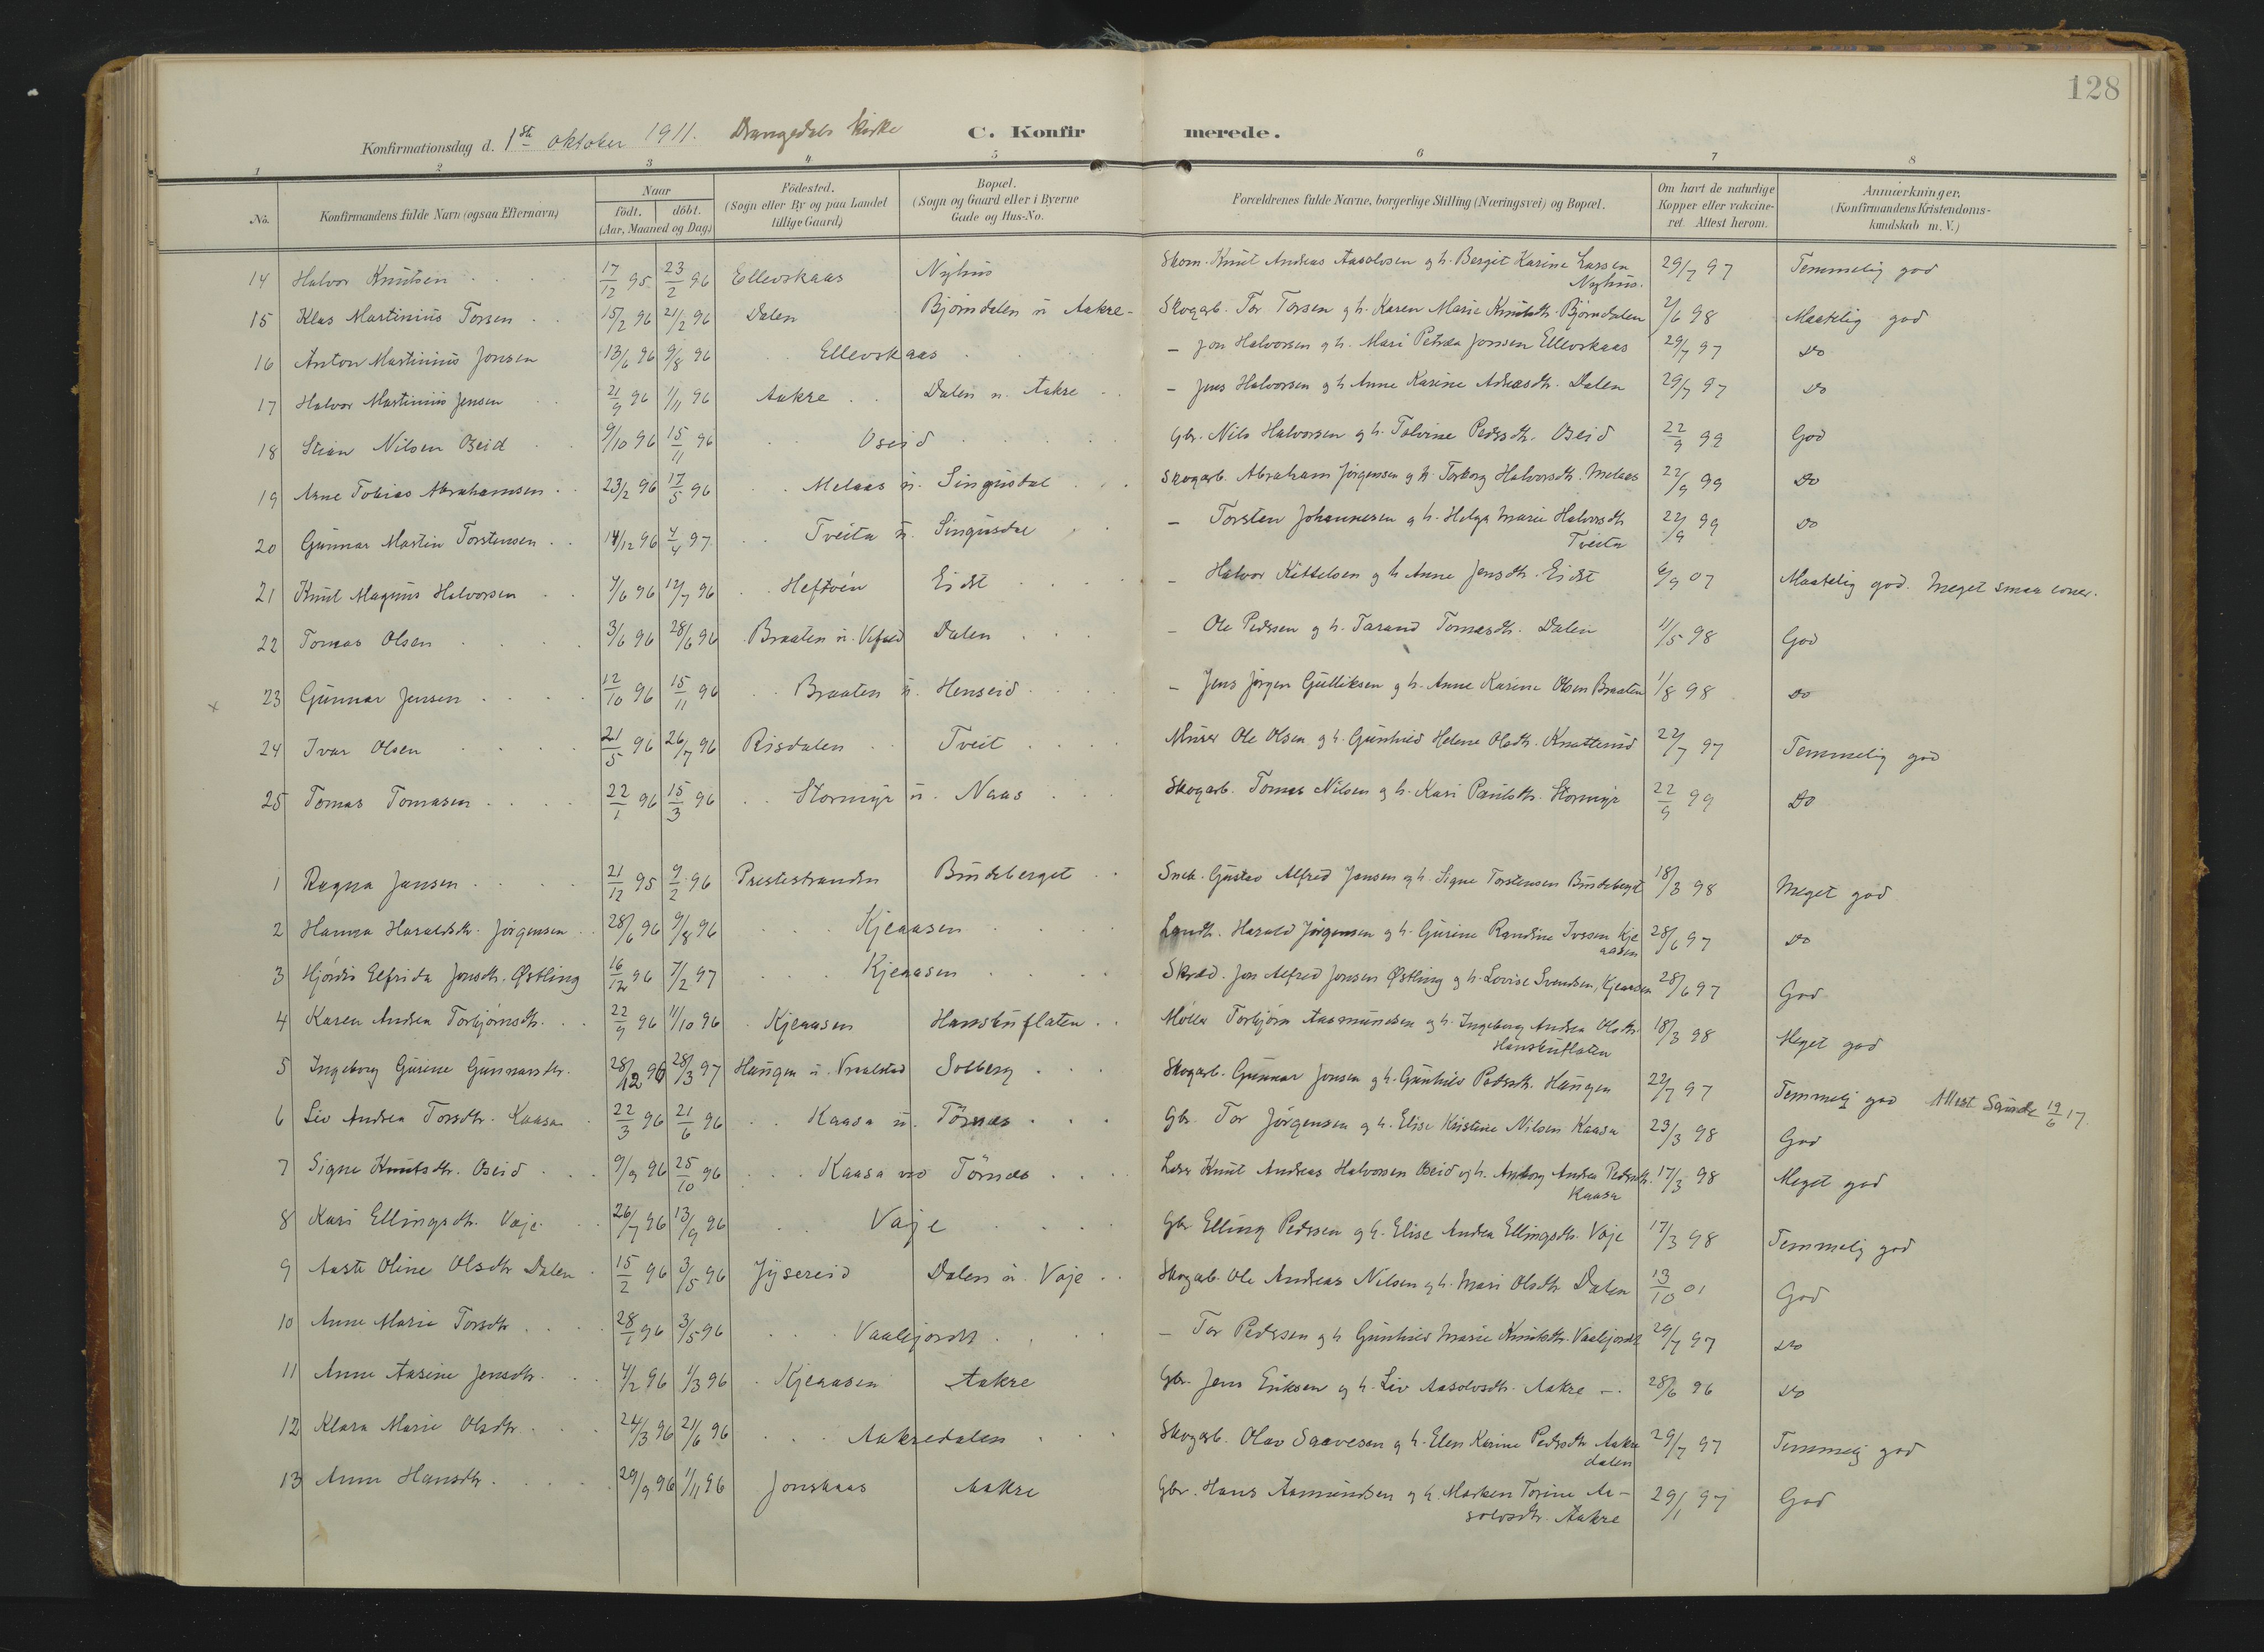 128
Konfirmationsdag d. 1ste oktober 1911. Drangedals kirke C. Konfirmerede.
1 2 3 4 5 6 7 8
No. Konfirmandens fulde Navn (ogsaa Efternavn) Naar födt. döbt. (Aar, Maaned og Dag) Födested. (Sogn eller By og paa Landet tillige Gaard) Bopæl. (Sogn og Gaard eller i Byerne Gade og Hus-No. Forældrenes fulde Navne, borgerlige Stilling (Næringsvei) og Bopæl. Om havt de naturlige Kopper eller vakcineret. Attest herom. Anmærkninger. (Konfirmandens Kristendomskundskab m. V.)
14 Halvor Knutsen 17/12 95 23/2 96 Ellevskaas Nyhus Skom. Knut Andreas Aasolvsen g h. Bergit Karine Larsen Nyhus. 29/7 97 Temmelig god
15 Klas Martinius Torsen 15/2 96 21/2 96 Dalen Bjørndalen u. Aakre Skogarb. Tor Torsen g h. Karen Marie Knutsdtr. Bjørndalen 2/6 98 Maatelig god
16 Anton Martinius Jonsen 13/6 96 9/8 96 Ellevskaas - Jon Halvorsen g h. Mari Petrea Jonsen Ellevskaas 29/7 97 Do
17 Halvor Martinius Jensen 21/9 96 1/11 96 Aakre Dalen u. Aakre - Jens Halvorsen g h Anne Karine Adreasdtr. Dalen 29/7 97 Do
18 Stian Nilsen Oseid 9/10 96 15/11 96 Oseid Gbr. Nils Halvorsen g h. Tolvine Pedersdtr. Oseid 22/9 99 God
19 Arne Tobias Abrahamsen 23/2 96 17/5 96 Melaas u. Singusdal Skogarb. Abraham Jørgensen g h. Torborg Halvorsdtr. Melaas 22/9 99 Do
20 Gunnar Martin Torstensen 14/12 96 4/4 97 Tveita u. Singusdal - Torsten Johannesen g h. Helga Marie Halvorsdtr Tveita 22/9 99 Do
21 Knut Magnus Halvorsen 7/6 96 12/7 96 Heftøen Eidet - Halvor Kittelsen g h Anne Jensdtr. Eidet 6/9 07 Maatelig god. Meget smaa evner.
22 Tomas Olsen 3/6 96 28/6 96 Braaten u. Vefald Dalen - Ole Pedersen g h. Tarand Tomasdtr. Dalen 11/5 98 God
x 23 Gunnar Jensen 12/10 96 15/11 96 Braaten u. Henseid - Jens Jørgen Gulliksen g h. Anne Karine Olsen Braaten 1/8 98 Do
24 Ivar Olsen 21/5 96 26/7 96 Risdalen Tveit Murer Ole Olsen g h. Gunhild Helene Olsdtr. Knatterud 22/7 97 Temmelig god
25 Tomas Tomasen 22/1 96 15/3 96 Stormyr u. Naas Skogarb. Tomas Nilsen g h. Kari Paulsdtr. Stormyr 22/9 99 Do
1 Ragna Jansen 21/12 95 9/2 96 Prestestranden Bindeberget Snek. Gustav Alfred Jansen g h. Signe Torstensen Bindeberget 18/3 98 Meget god
2 Hanna Haraldsdtr. Jørgensen 28/6 96 9/8 96 Kjeaasen Landh. Harald Jørgensen g h. Gurine Randine Iversen Kjeaasen 28/6 97 Do
3 Hjørdis Elfrida Jonsdtr. Østling 16/12 96 7/2 97 Kjeaasen Skræd. Jon Alfred Jonsen Østling g h. Lovise Svendsen, Kjeaasen 28/6 97 God
4 Karen Andrea Torbjørnsdtr. 22/9 96 11/10 96 Kjeaasen Hanskuflaten Møller Torbjørn Aasmundsen g h. Ingeborg Andrea Olsdtr Hanskuflaten 18/3 98 Meget god
5 Ingeborg Gurine Gunnarsdtr. 28/12 96 28/3 97 Haugen u. Vraalstad Solberg Skogarb. Gunnar Jonsen g h. Gunhild Pedersdtr. Haugen 22/7 97 Temmelig god Attest Sannde 19/6 17.
6 Liv Andrea Torsdtr. Kaasa 22/3 96 21/6 96 Kaasa u. Törnes Gbr. Tor Jörgensen g h. Elise Kirstine Nilsen Kaasa 23/3 98 God
7 Signe Knutsdtr. Oseid 9/9 96 25/10 96 Kaasa ved Törnes Lærer Knut Andreas Halvorsen Oseid og h. Andrea Pedersdtr. Kaasa 17/3 98 Meget god
8 Kari Ellingsdtr. Vøje 26/7 96 13/9 96 Vøje Gbr Elling Pedersen g h. Elise Andrea Ellingsdtr. Vøje 17/3 98 Temmelig god
9 Aaste Oline Olsdtr Dalen 15/2 96 3/5 96 Jysereid Dalen u. Vøje Skogarb. Ole Andreas Nilsen g h. Mari Olsdtr Dalen 13/10 01 God
10 Anne Marie Torsdtr 28/1 96 3/5 96 Vaalijordet - Tor Pedersen g h Gunhild Marie Knutsdtr. Vaalijordet 29/7 97 Do
11 Anne Aasine Jensdtr. 4/2 96 1/3 96 Kjeaasen Aakre Gbr. Jens Eriksen g h. Liv Aasolvsdtr. Aakre - 28/6 96 Do
12 Klara Marie Olsdtr. 24/3 96 21/6 96 Aakredalen Skogarb. Olav Saavesen g h. Elen Karine Pedersdtr Aakredalen 29/7 97 Temmelig god
13 Anne Hansdtr. 29/9 96 1/11 96 Jonskaas Aakre Gbr. Hans Aamundsen g h. Marken Torine Aasolvsdtr. Aakre 29/1 97 God